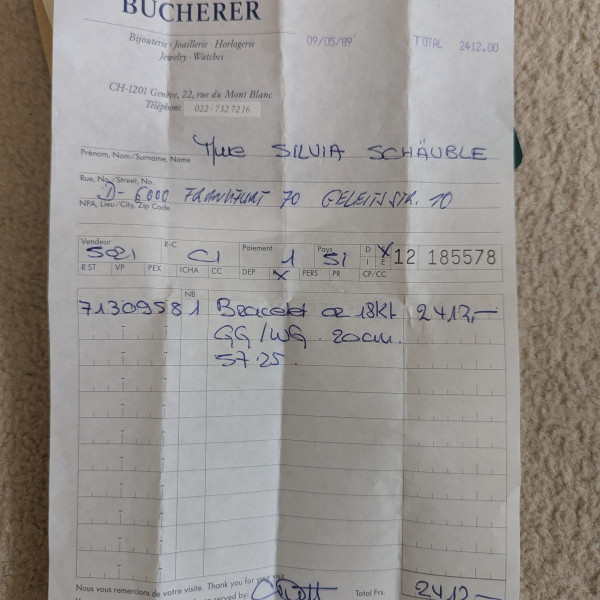 BUCHERER
Bijouterie · Joaillerie · Horlogerie
Jewelry · Watches
09/05/89 TOTAL 2412.00
CH-1201 Genève, 22, rue du Mont Blanc
Téléphone 022 - 732 72 16
Prénom, Nom/Surname, Name Mme SILVIA SCHÄUBLE
Rue, No./Street, No.
D- 6000 FRANKFURT 70 GELEITSSTR. 10
NPA, Lieu/City, Zip Code
Vendeur R-C Paiement Pays D
CI 1 SI I E X 12 185578
R ST VP PEX ICHA CC DEP X PERS PR CP/CC
NB
71309581 Bracelet or 18Kt 2412,—
GG/WG 20cm.
57.25.
Nous vous remercions de votre visite. Thank you for your visit.
served by: Total Frs. 2412.—